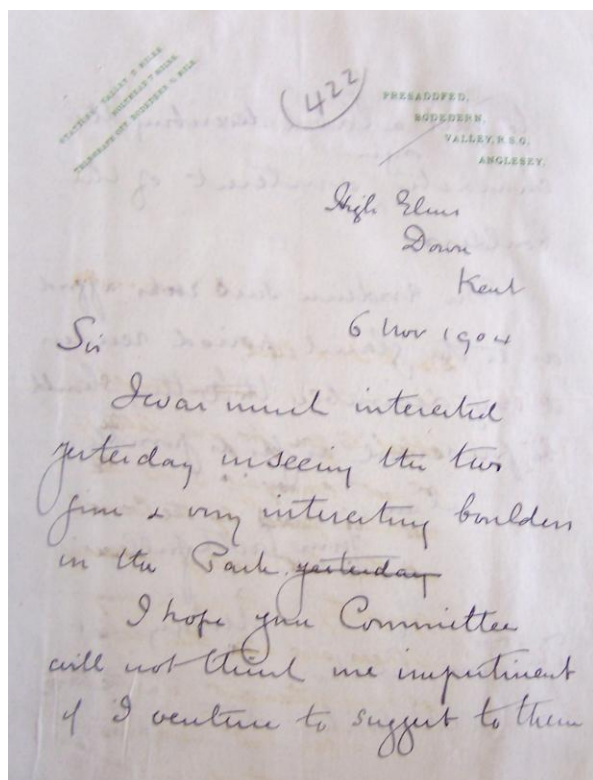 STATIONS VALLEY 5 MILES.
HOLYHEAD 7 MILES.
TELEGRAPH OFF. BODEDERN ¼ MILE.
(422)
PRESADDFED,
BODEDERN,
VALLEY, R.S.O.
ANGLESEY.
High Elms
Down
Kent
6 Nov 1904
Sir
I was much interested
yesterday in seeing the two
fine & very interesting boulders
in the Park yesterday
I hope your Committee
will not think me impertinent
if I venture to suggest to them